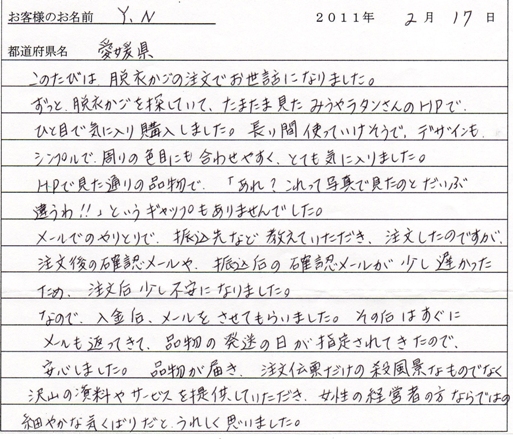 お客様のお名前 Y.N 2011年 2月 17日
都道府県名 愛媛県
このたびは、脱衣かごの注文でお世話になりました。
ずっと、脱衣かごを探していて、たまたま見た みうやラタンさんのHPで、
ひと目で気に入り購入しました。長い間使っていけそうで、デザインも、
シンプルで、周りの色目にも合わせやすく、とても気に入りました。
HPで見た通りの品物で、「あれ?これって写真で見たのとだいぶ
違うわ!!」というギャップもありませんでした。
メールでのやりとりで、振込先など教えていただき、注文したのですが、
注文後の確認メールや、振込后の確認メールが少し遅かった
ため、注文后少し不安になりました。
なので、入金后、メールをさせてもらいました。その后はすぐに
メールも返ってきて、品物の発送の日が指定されてきたので、
安心しました。品物が届き、注文伝票だけの殺風景なものでなく
沢山の資料やサービスを提供していただき、女性の経営者の方ならではの
細やかな気くばりだと、うれしく思いました。